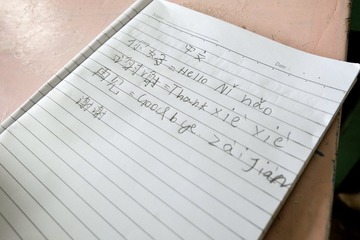 中文
你好 = Hello Nǐ hǎo
谢谢 = Thank xiè xiè
再见 = Goodbye zài jian
谢谢